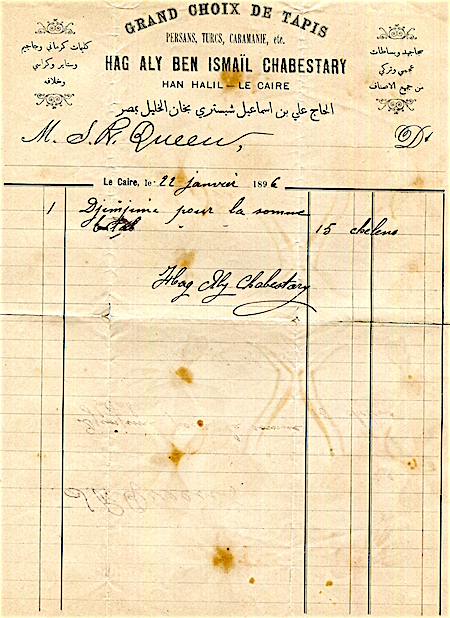 GRAND CHOIX DE TAPIS
PERSANS, TURCS, CARAMANIE, etc.
HAG ALY BEN ISMAÏL CHABESTARY
HAN HALIL — LE CAIRE
الحاج علي بن اسماعيل شبستري بخان الخليل بمصر
سجاجيد وبساطات
عجمي وتركي
من جميع الاصناف
كليات كرماني وجاجيم
وستاير وكراسي
وخلافه
M. S. R. Queen, Dr
Le Caire, le 22 janvier 1896
1 Djimjime pour la somme
" " 15 chelens
Hag Aly Chabestary